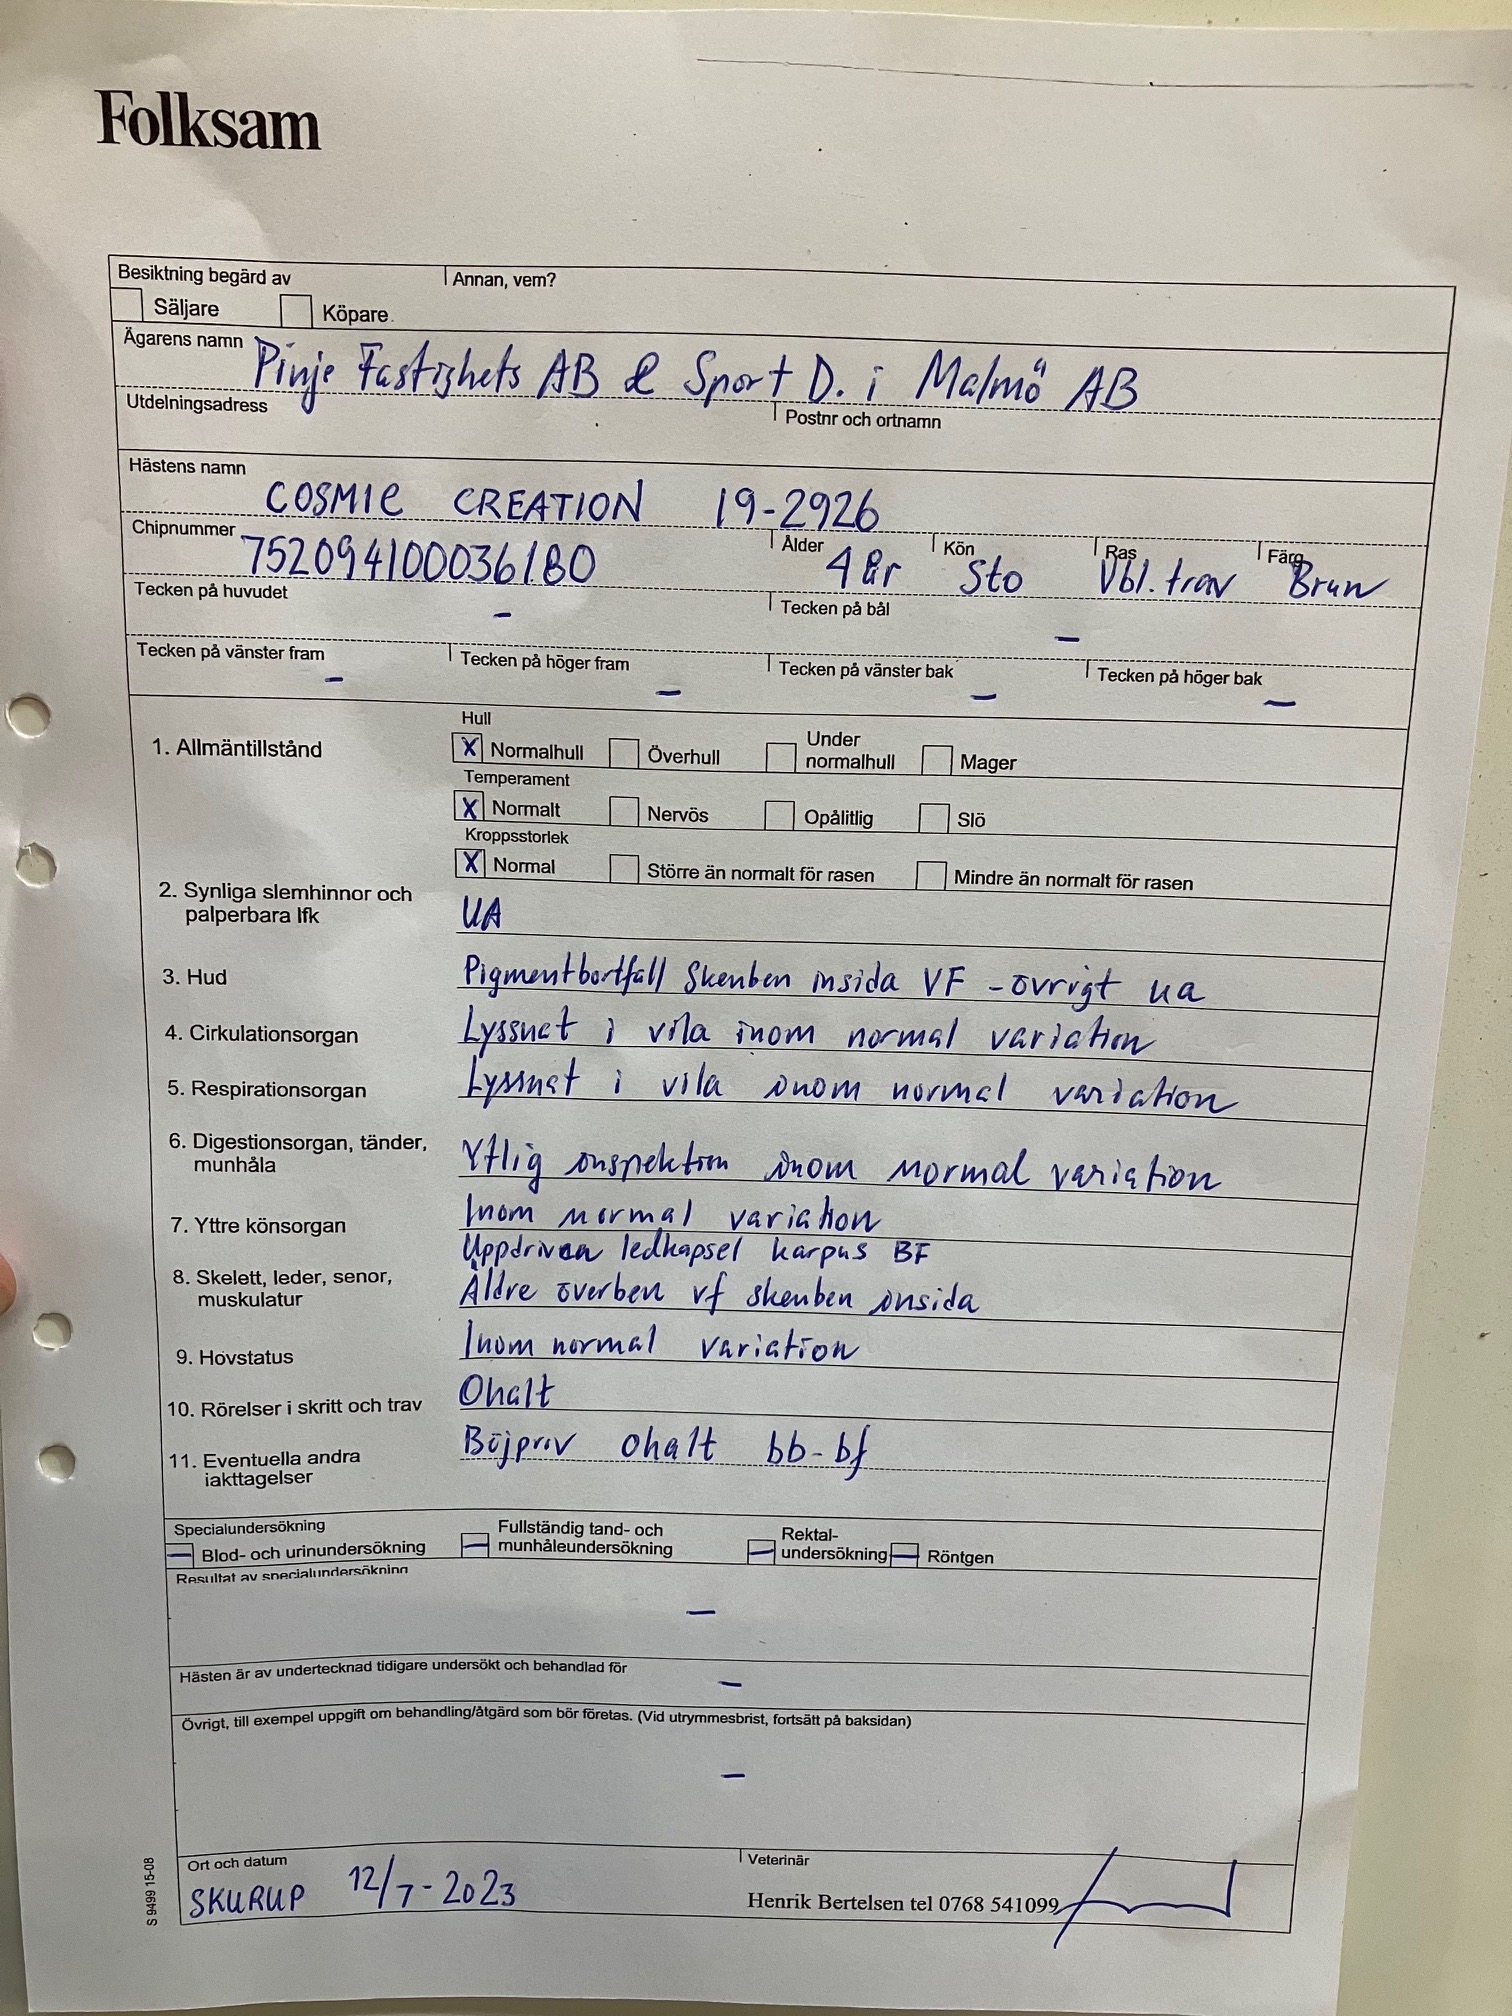 Folksam
Besiktning begärd av
Annan, vem?
Säljare Köpare
Ägarens namn Pinje Fastighets AB & Sport D. i Malmö AB
Utdelningsadress Postnr och ortnamn
Hästens namn
COSMIC CREATION 19-2926
Chipnummer 752094100036180 Ålder 4 år Kön Sto Ras Vbl. trav Färg Brun
Tecken på huvudet – Tecken på bål –
Tecken på vänster fram – Tecken på höger fram – Tecken på vänster bak – Tecken på höger bak –
Hull
1. Allmäntillstånd X Normalhull Överhull Under normalhull Mager
Temperament
X Normalt Nervös Opålitlig Slö
Kroppsstorlek
X Normal Större än normalt för rasen Mindre än normalt för rasen
2. Synliga slemhinnor och
palperbara lfk UA
3. Hud Pigmentbortfall Skenben insida VF - övrigt ua
4. Cirkulationsorgan Lyssnat i vila inom normal variation
5. Respirationsorgan Lyssnat i vila inom normal variation
6. Digestionsorgan, tänder,
munhåla Ytlig inspektion inom normal variation
7. Yttre könsorgan Inom normal variation
Uppdriven ledkapsel karpus BF
8. Skelett, leder, senor,
muskulatur Äldre överben vf skenben insida
9. Hovstatus Inom normal variation
10. Rörelser i skritt och trav Ohalt
11. Eventuella andra
iakttagelser Böjprov ohalt bb-bf
Specialundersökning
– Blod- och urinundersökning – Fullständig tand- och munhåleundersökning – Rektal-undersökning – Röntgen
Resultat av specialundersökning
–
Hästen är av undertecknad tidigare undersökt och behandlad för
–
Övrigt, till exempel uppgift om behandling/åtgärd som bör företas. (Vid utrymmesbrist, fortsätt på baksidan)
–
Ort och datum Veterinär
SKURUP 12/7-2023 Henrik Bertelsen tel 0768 541099
S 9499 15-08